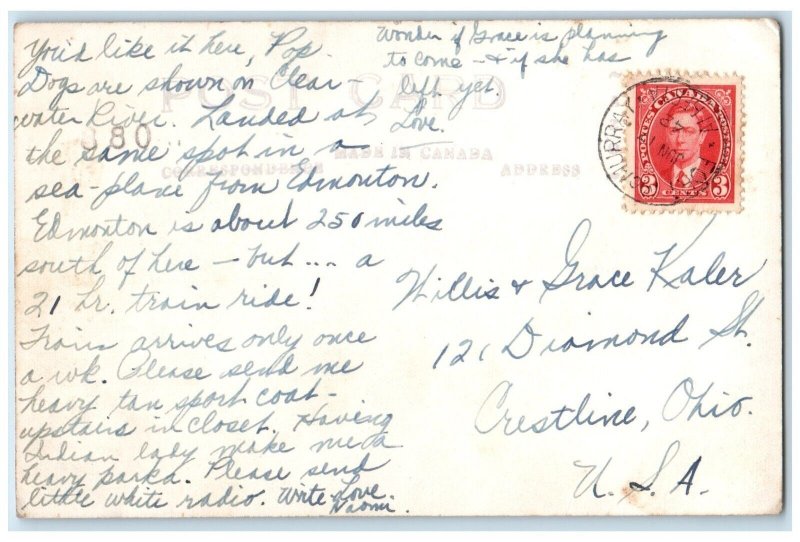 You'd like it here, Pop.
Dogs are shown on Clear-
water River. Landed at
the same spot in a
sea-plane from Edmonton.
Edmonton is about 250 miles
south of here - but... a
21 hr. train ride!
Train arrives only once
a wk. Please send me
heavy tan sport coat -
upstairs in closet. Having
Indian lady make me a
heavy parka. Please send
little white radio. Write Love.
Naomi.
Wonder if Grace is planning
to come - & if she has
left yet.
Love.
POST CARD
380
MADE IN CANADA
CORRESPONDENCE
ADDRESS
POSTES CANADA POSTAGE
3 3
CENTS
Willis & Grace Kaler
121 Diamond St.
Crestline, Ohio.
U.S.A.